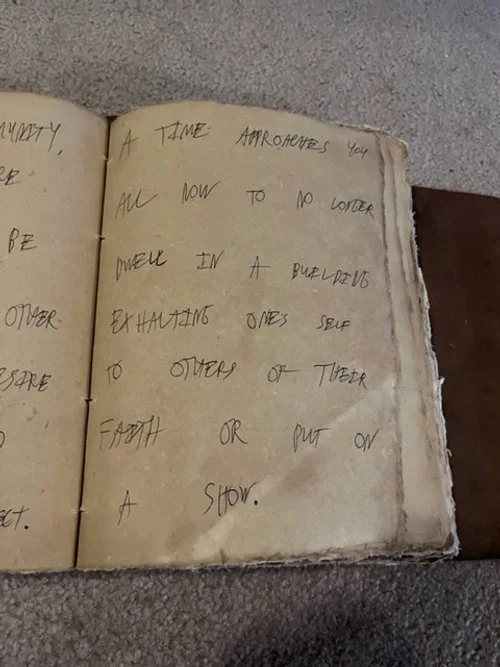 RE
BE
OTHER
ECT.
A TIME APPROACHES YOU
ALL NOW TO NO LONGER
DWELL IN A BUILDING
EXHALTING ONE'S SELF
TO OTHERS OF THEIR
FAITH OR PUT ON
A SHOW.